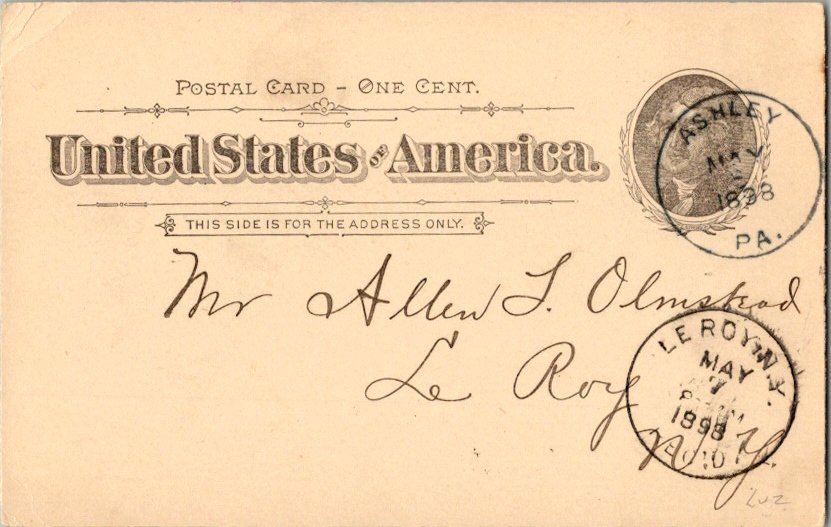 POSTAL CARD – ONE CENT.
United States OF America.
THIS SIDE IS FOR THE ADDRESS ONLY.
ASHLEY
MAY
1898
PA.
Mr Allen S. Olmstead
Le Roy
N.Y.
LE ROY, N.Y.
MAY
7
1898
REC'D.
202